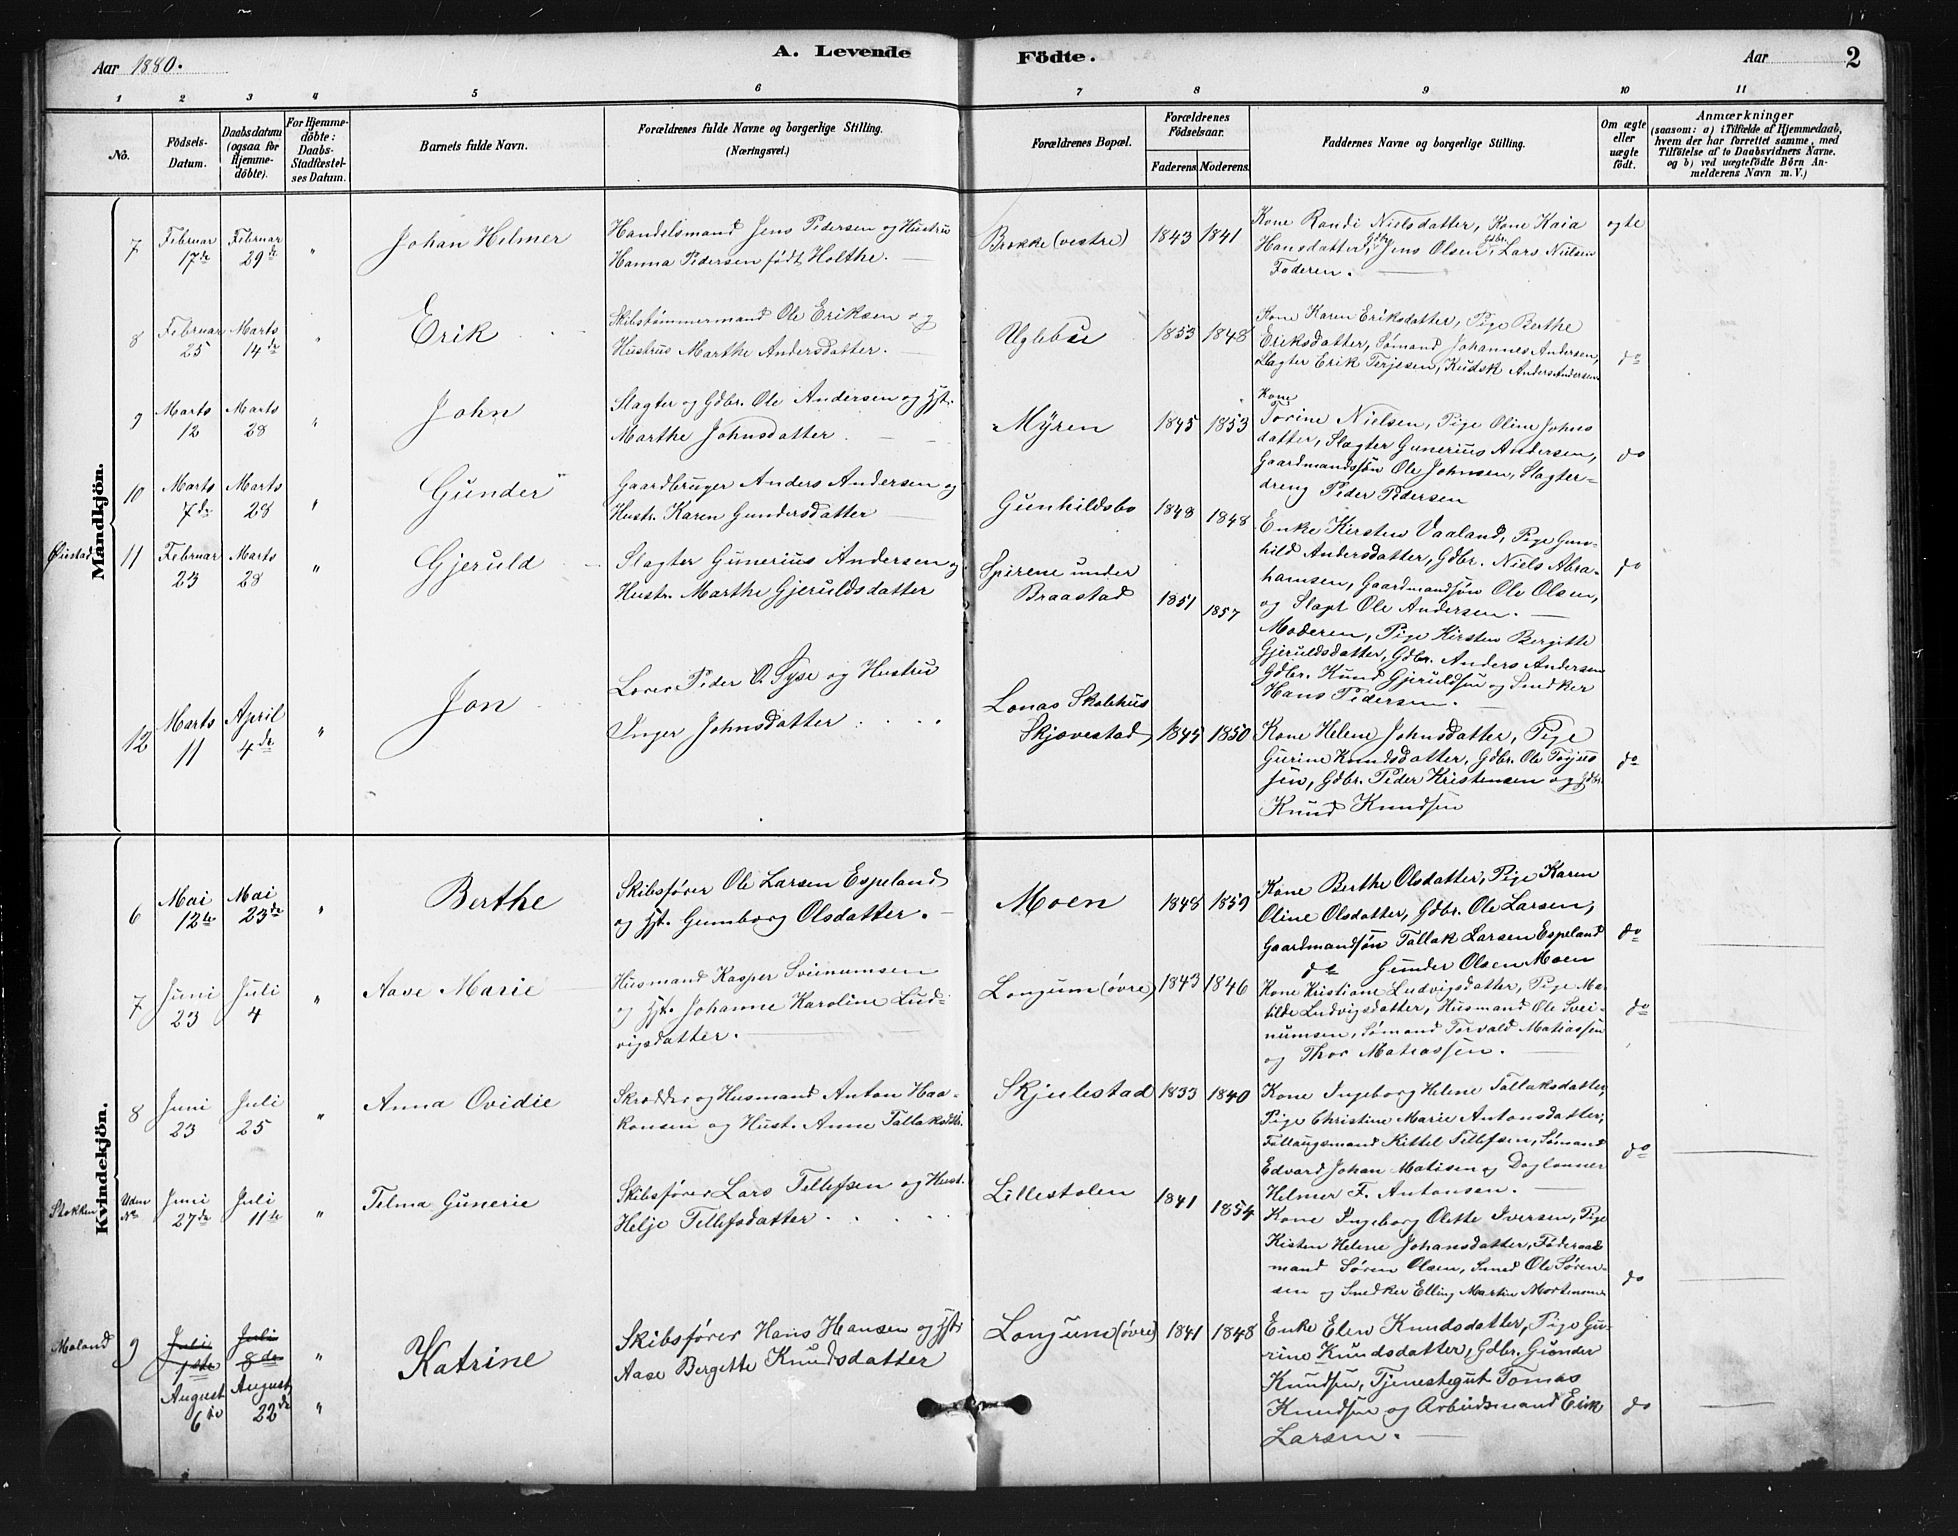 Aar 1880.
A. Levende
Födte.
Aar
2
1 2 3 4 5 6 7 8 9 10 11
No.
Födsels-Datum.
Daabsdatum (ogsaa for Hjemmedöbte).
For Hjemmedöbte: Daabs-Stadfæstelses Datum.
Barnets fulde Navn.
Forældrenes fulde Navne og borgerlige Stilling. (Næringsvei.)
Forældrenes Bopæl.
Forældrenes Födselsaar.
Faderens.
Moderens.
Faddernes Navne og borgerlige Stilling.
Om ægte eller uægte födt.
Anmærkninger
(saasom: a) i Tilfælde af Hjemmedaab, hvem der har forrettet samme, med Tilföielse af to Daabsvidners Navne. og b) ved uægtefödte Börn Anmelderens Navn m. V.)
Mandkjön.
7 Februar 17de Februar 29de " Johan Hilmer
Handelsmand Jens Pedersen og Hustru
Hanna Pedersen født Holthe.
Brække (vestre) 1843 1841
Kone Randi Nielsdatter, Kone Kaia
Hansdatter, Gdbr. Jens Olsen, Gdbr. Lars Nielsen
Faderen.
ægte
8 Februar 25 Marts 14de " Erik
Skibstømmermand Ole Eriksen og
Hustru Marthe Andersdatter.
Uglebu 1853 1848
Kone Karen Eriksdatter, Pige Berthe
Eriksdatter, Sømand Johannes Andersen,
Slagter Erik Terjesen, Kudsk Anders Andersen
do
9 Marts 12 Marts 28 " John
Slagter og Gdbr. Ole Andersen og Hst.
Marthe Johnsdatter.
Myren 1845 1853
Kone
Torine Nielsen, Pige Oline Johns
datter, Slagter Gunerius Andersen,
Gaardmandssøn Ole Johnsen, Slagter-
dreng Peder Pedersen
do
10 Marts 7de Marts 28 " Gunder
Gaardbruger Anders Andersen og
Hustr. Karen Gundersdatter
Gunhildsbo 1848 1848
Enke Kirsten Vaaland, Pige Gun-
hild Andersdatter, Gdbr. Niels Abra-
hamsen, Gaardmandsøn Ole Olsen,
og Slagt Ole Andersen.
do
Øiestad 11 Februar 23 Marts 28 " Gjeruld
Slagter Gunerius Andersen og
Hustr. Marthe Gjeruldsdatter
Spirene under
Braastad 1851 1857
Moderen, Pige Kirsten Bergitte
Gjeruldsdatter, Gdbr. Anders Andersen
Gdbr. Knud Gjeruldsen og Snedker
Hans Pedersen.
12 Marts 11 April 4de " Jon
Lærer Peder O. Syse og Hustru
Inger Johnsdatter.
Lonas Skolehus
Skjævestad 1845 1850
Kone Helene Johnsdatter, Pige
Gurine Knudsdatter, Gdbr. Ole Tojus
sen, Gdbr. Peder Kristensen og Gdbr.
Knud Knudsen
do
Kvindekjön.
6 Mai 12te Mai 23de " Berthe
Skibsfører Ole Larsen Espeland
og Hst. Gunnborg Olsdatter.
Moen 1848 1859
Kone Berthe Olsdatter, Pige Karen
Oline Olsdatter, Gdbr. Ole Larsen,
Gaardmandsøn Tallak Larsen Espeland
do Gunder Olsen Moen
do
7 Juni 23 Juli 4 " Aase Marie
Husmand Kasper Sveinumsen
og Hst. Johanne Karoline Lud-
vigsdatter.
Longum (øvre) 1843 1846
Kone Kristiane Ludvigsdatter, Pige Ma-
tilde Ludvigsdatter, Husmand Ole Svei-
numsen, Sømand Torvald Matiassen
og Thor Matiassen.
do
8 Juni 23 Juli 25 " Anna Ovidie
Skrædder og Husmand Anton Haa-
konsen og Hust. Anne Tallaksdtr.
Skjulestad 1833 1840
Kone Ingeborg Helene Tallaksdatter,
Pige Christine Marie Antonsdatter,
Føllaugsmand Kittel Tellefsen, Sømand
Edvard Johan Matisen og Daglønner
Helmer F. Antonsen.
do
Stokken Uden No Juni 27de Juli 11te " Telma Gunerie
Skibsfører Lars Tellefsen og Hust.
Helje Tellefsdatter.
Lillestølen 1841 1854
Kone Ingeborg Olette Iversen, Pige
Kisten Helene Johansdatter, Føderaads
mand Søren Olsen, Smed Ole Søren-
sen og Snedker Elling Martin Mortensen
do
Moland 9 Juli 1ste Juli 8de " Katrine
August 6te August 22de "
Skibsfører Hans Hansen og Hst.
Aase Bergette Knudsdatter
Longum (øvre) 1841 1848
Enke Elen Knudsdatter, Pige Gu-
rine Knudsdatter, Gdbr. Gunder
Knudsen, Tjenestegut Tomas
Knudsen og Arbeidsmand Erik
Larsen.
do